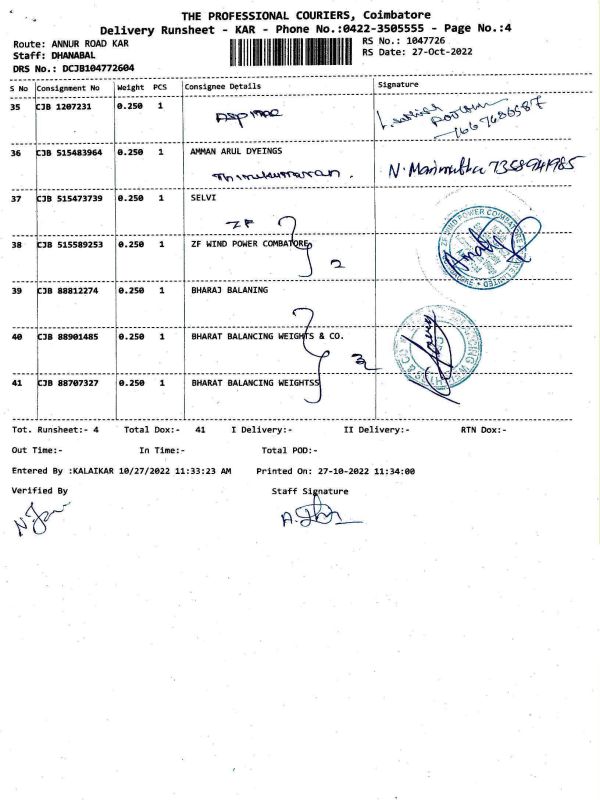 THE PROFESSIONAL COURIERS, Coimbatore
Delivery Runsheet - KAR - Phone No.:0422-3505555 - Page No.:4
Route: ANNUR ROAD KAR
RS No.: 1047726
Staff: DHANABAL
RS Date: 27-Oct-2022
DRS No.: DCJB104772604
S No Consignment No Weight PCS Consignee Details Signature
35 CJB 1207231 0.250 1
36 CJB 515483964 0.250 1 AMMAN ARUL DYEINGS
Thirukumaran. N. Marimuthu 7358941985
37 CJB 515473739 0.250 1 SELVI
ZF
38 CJB 515589253 0.250 1 ZF WIND POWER COMBATORE
2
39 CJB 88812274 0.250 1 BHARAJ BALANING
40 CJB 88901485 0.250 1 BHARAT BALANCING WEIGHTS & CO.
3
41 CJB 88707327 0.250 1 BHARAT BALANCING WEIGHTSS
Tot. Runsheet:- 4 Total Dox:- 41 I Delivery:- II Delivery:- RTN Dox:-
Out Time:- In Time:- Total POD:-
Entered By :KALAIKAR 10/27/2022 11:33:23 AM Printed On: 27-10-2022 11:34:00
Verified By Staff Signature